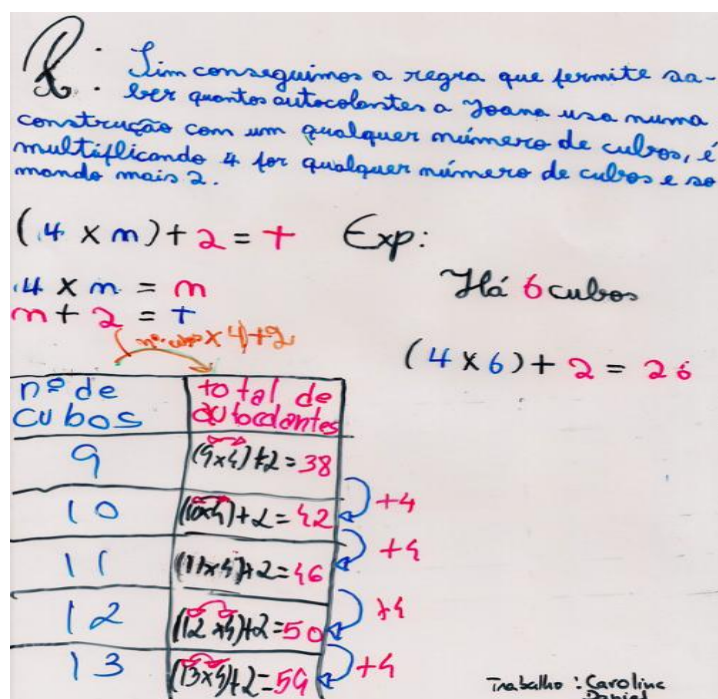 R: Sim conseguimos a regra que permite sa-
ber quantos autocolantes a Joana usa numa
construção com um qualquer número de cubos, é
multiplicando 4 por qualquer número de cubos e so
mando mais 2.
(4 × n) + 2 = t Exp:
4 × n = n Há 6 cubos
n + 2 = t
(nº cubos × 4) + 2
(4 × 6) + 2 = 26
nº de cubos total de autocolantes
9 (9×4)+2=38
10 (10×4)+2=42 +4
11 (11×4)+2=46 +4
12 (12×4)+2=50 +4
13 (13×4)+2=54 +4
Trabalho: Carolina
Daniel